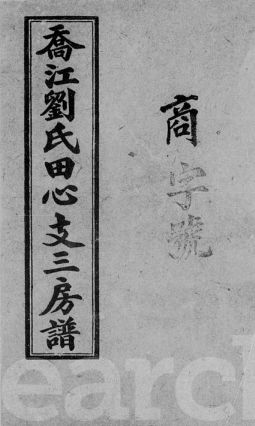 商字號
喬江劉氏田心支三房譜
earch